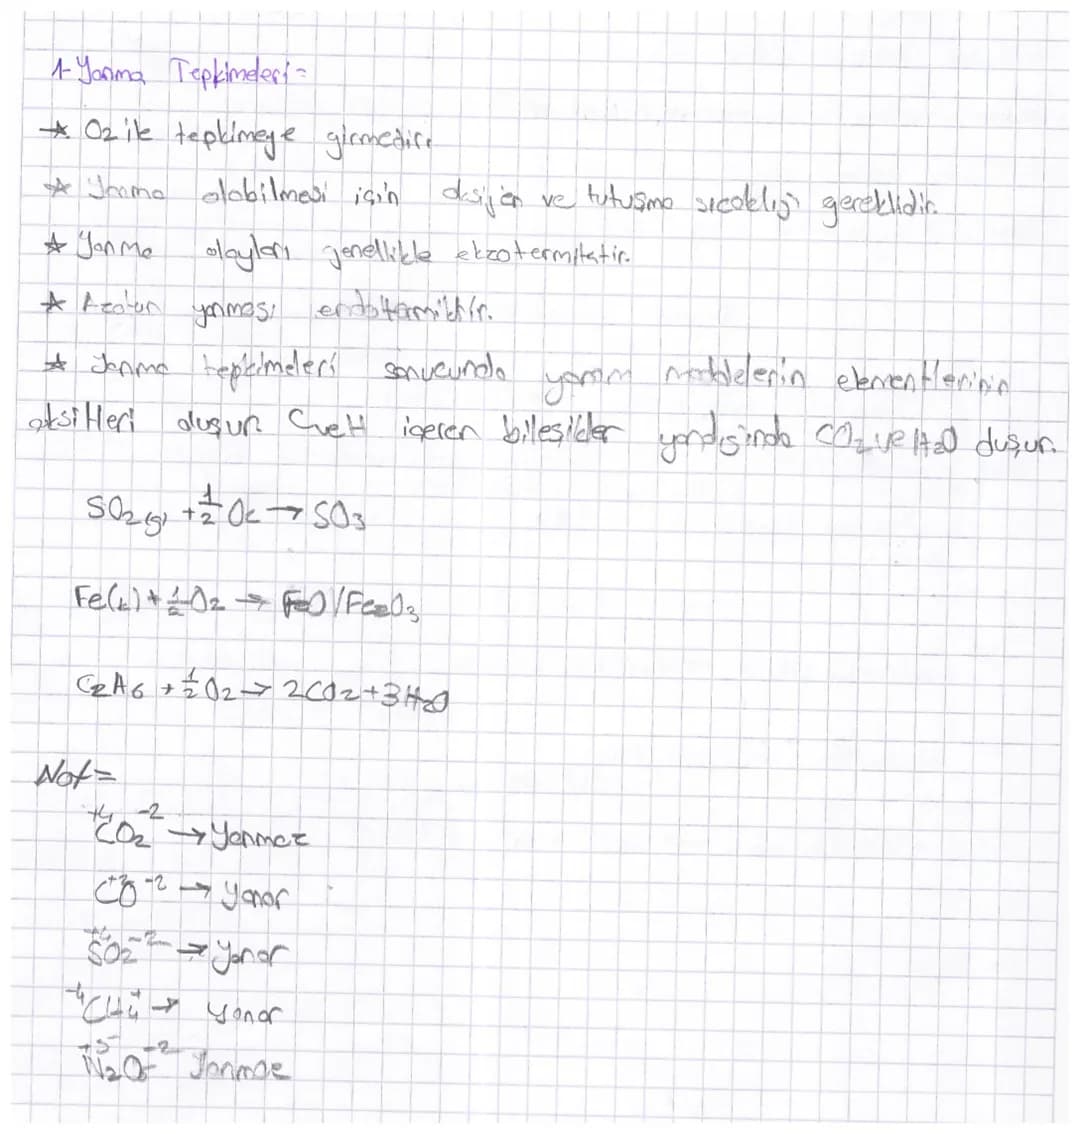 1- Yanma Tepkimeleri =
* O2 ile tepkimeye girmedir.
* Yanma olabilmesi için oksijen ve tutuşma sıcaklığı gereklidir.
* Yanma olayları genellikle ekzotermiktir.
* Azotun yanması endotermiktir.
* Yanma tepkimeleri sonucunda yanan maddelerin elementlerinin
oksitleri oluşur C ve H içeren bileşikler yandığında CO2 ve H2O oluşur.
SO2(g) + 1/2 O2 → SO3
Fe(k) + 1/2 O2 → FeO/Fe2O3
C2H6 + 1/2 O2 → 2CO2 + 3H2O
Not =
+4 CO2 -2 → Yanmaz
C+2O -2 → yanar
+4 SO2 -2 → yanar
-4 CH4 + → yanar
+5 N2O5 -2 Yanmaz